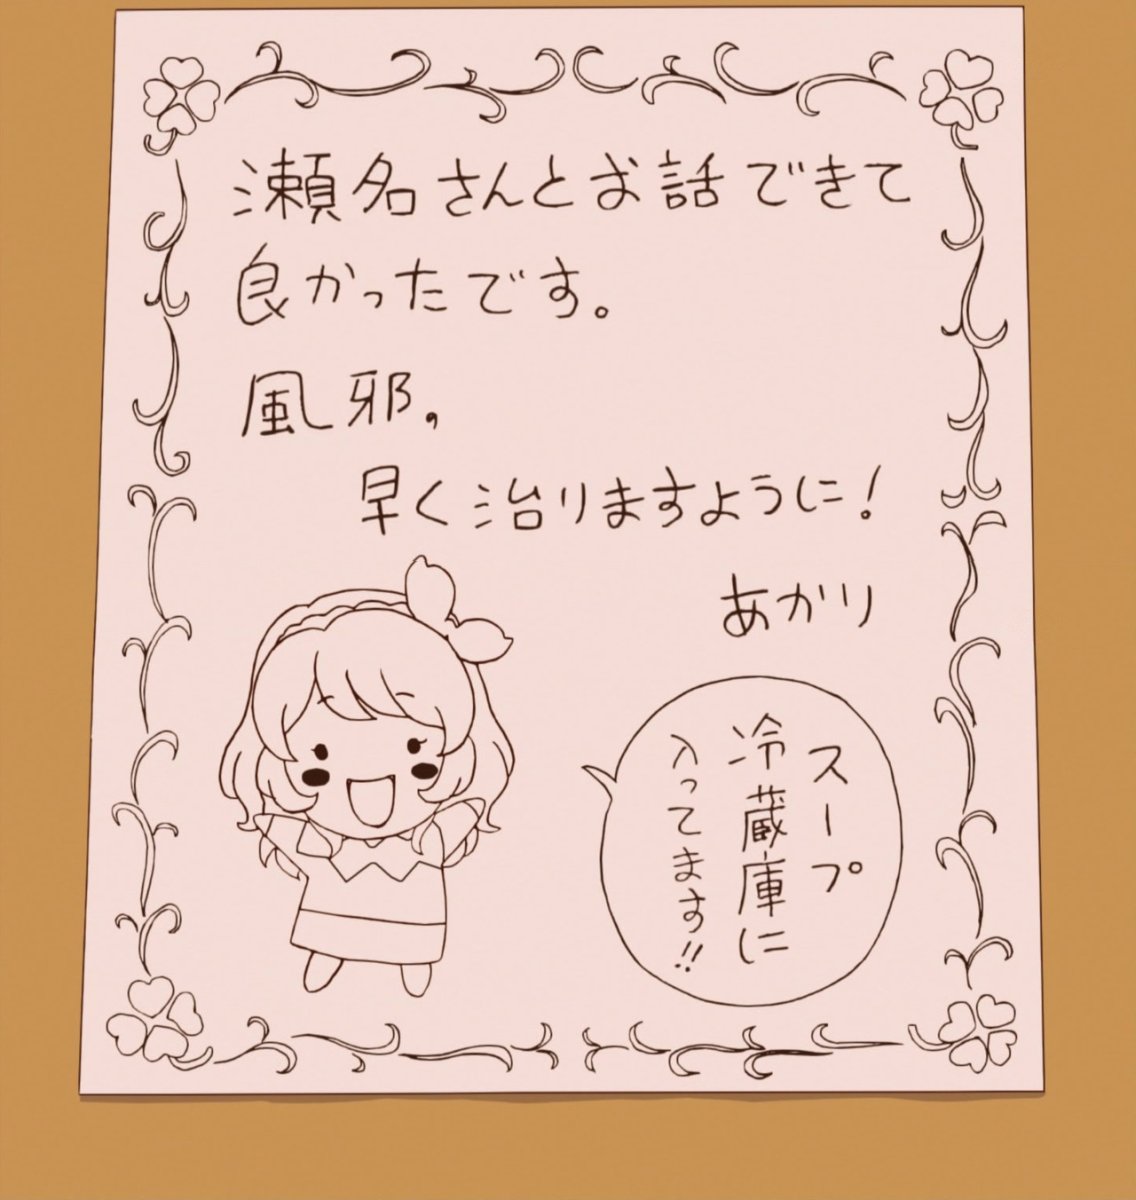 瀬名さんとお話できて
良かったです。
風邪。
早く治りますように!
あかり
スープ
冷蔵庫に
入ってます!!